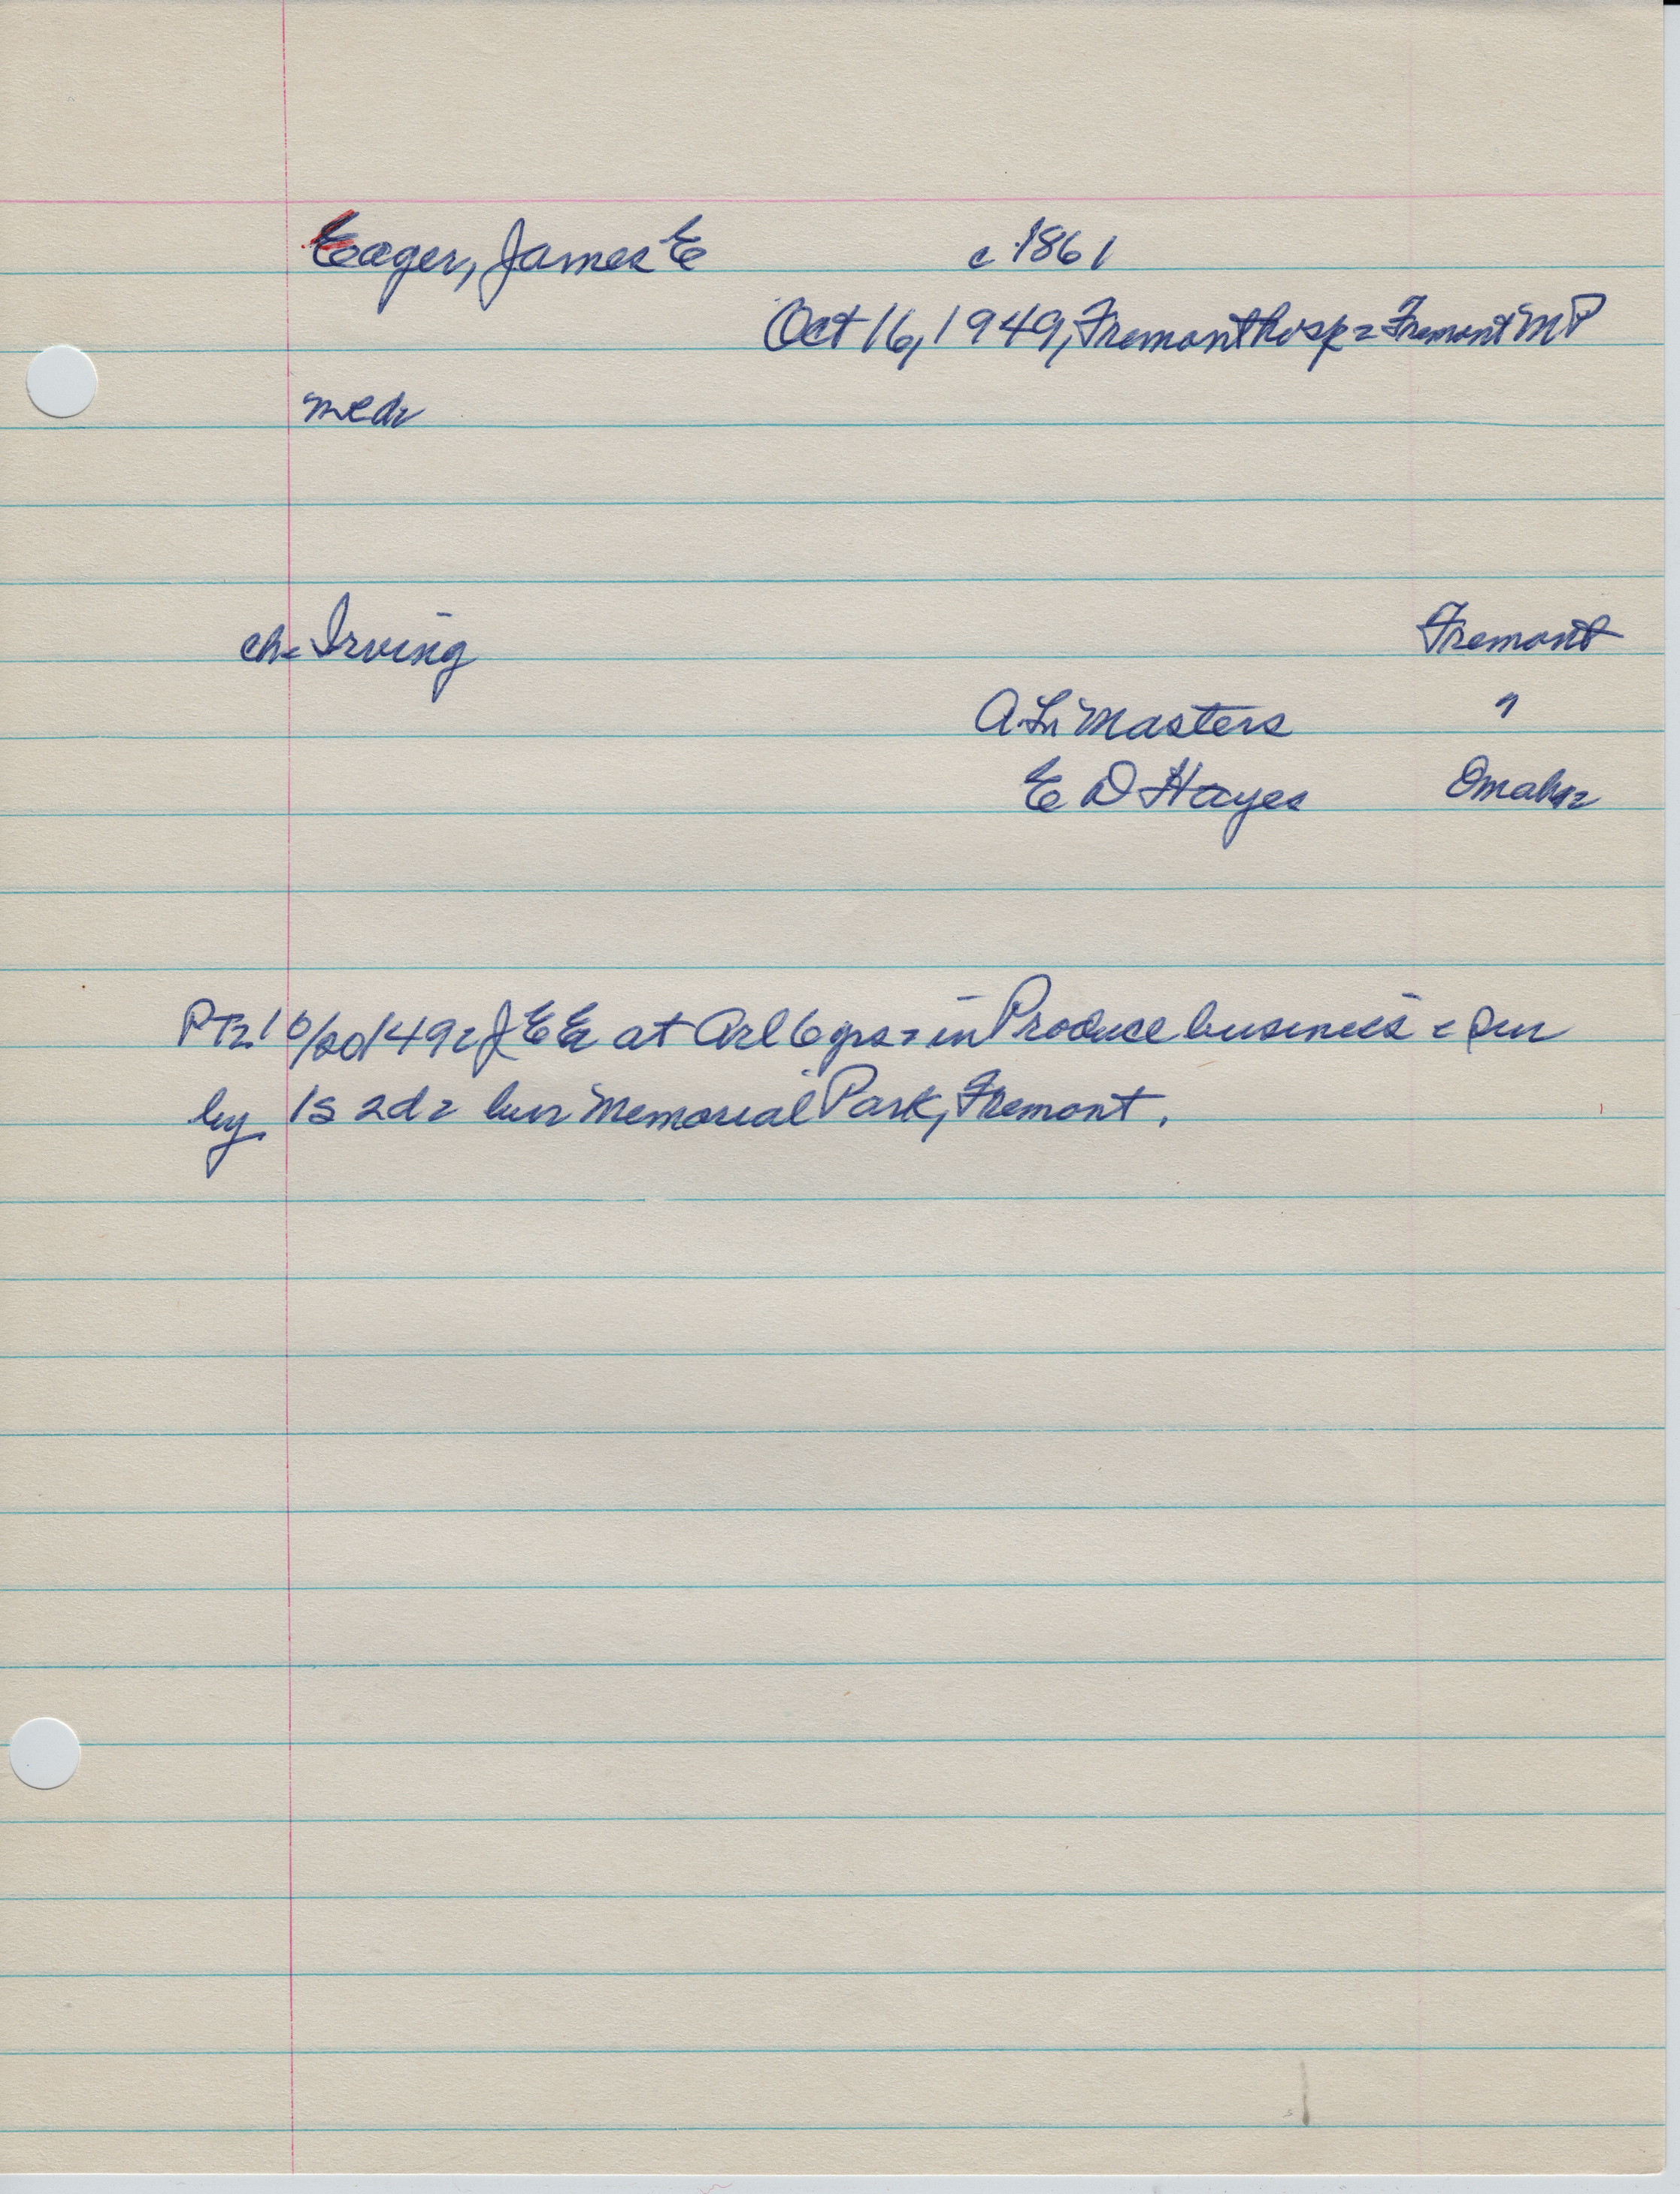 Eager, James E c 1861
Oct 16, 1949, Fremont hosp = Fremont MP
md
ch- Irving Fremont
A.L. Masters "
E D Hayes Omaha
PT 10/20/49 = J E E at Arl 6 yrs = in Produce business = sur
by 1s 2d = bur Memorial Park, Fremont.